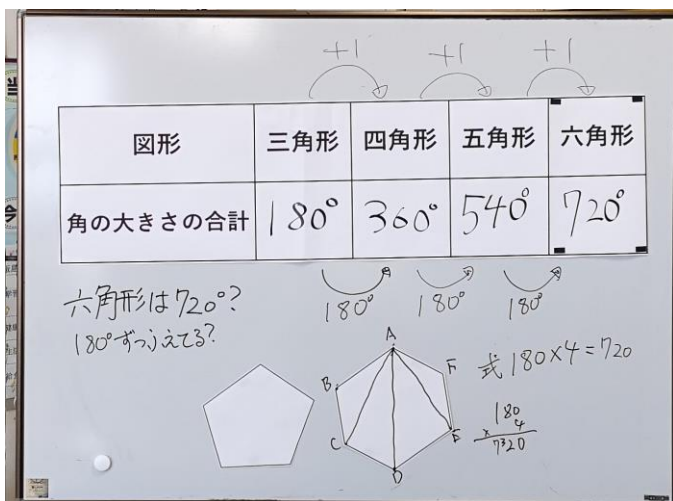 +1 +1 +1
図形 三角形 四角形 五角形 六角形
角の大きさの合計 180° 360° 540° 720°
180° 180° 180°
六角形は720°?
180°ずつふえてる?
A
B
C
D
E
F
式 180×4=720
180
× 4
720